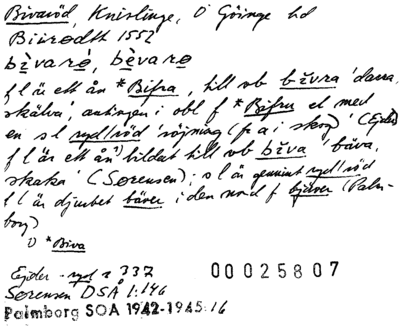 Bivaröd, Knislinge, Ö Göinge hd
Biurødt 1552
bìvarö, bèvarö
f l är ett ån *Bifra, till vb bivra 'darra,
skälva', antingen i obl f *Bifru el med
en s l ryd/röd 'röjning (på a i skog)' (Ejder)
f l är ett ån ¹) bildat till vb biva 'bäva,
skaka' (Sørensen); s l är genuint ryd/röd
f l är djurbet bäver i den nord f bjäver (Palm-
borg)
1) *Biva
Ejder -ryd s 337
00025807
Sørensen DSÅ 1:146
Palmborg SOA 1942-1945:16